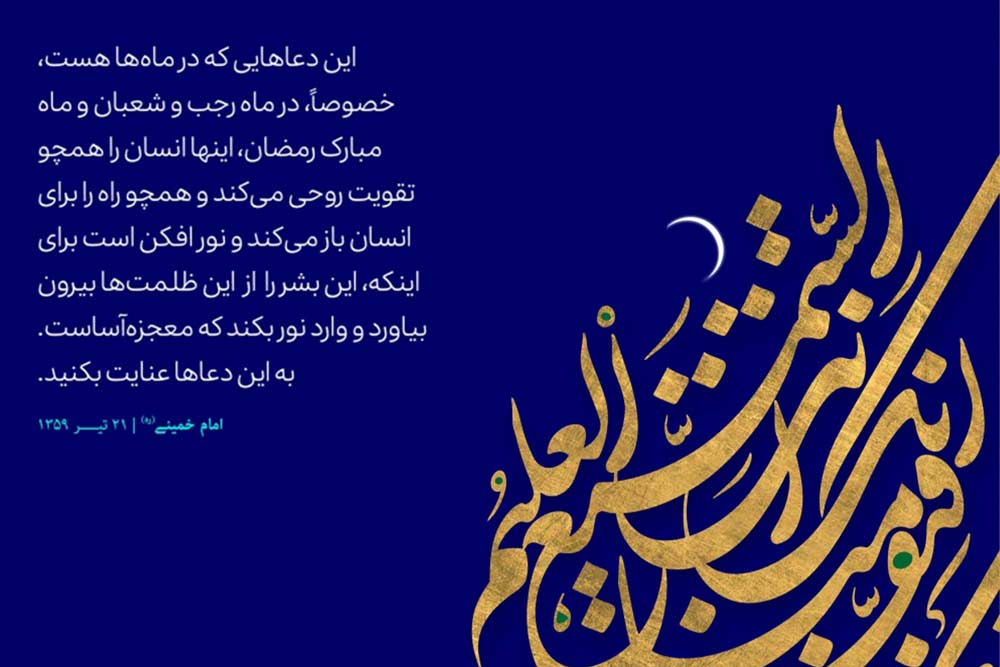 این دعاهایی که در ماه‌ها هست،
خصوصاً، در ماه رجب و شعبان و ماه
مبارک رمضان، اینها انسان را همچو
تقویت روحی می‌کند و همچو راه را برای
انسان باز می‌کند و نور افکن است برای
اینکه، این بشر را از این ظلمت‌ها بیرون
بیاورد و وارد نور بکند که معجزه‌آساست.
به این دعاها عنایت بکنید.
امام خمینی(ره) | ۲۱ تیـــر ۱۳۵۹
السمیع العلیم